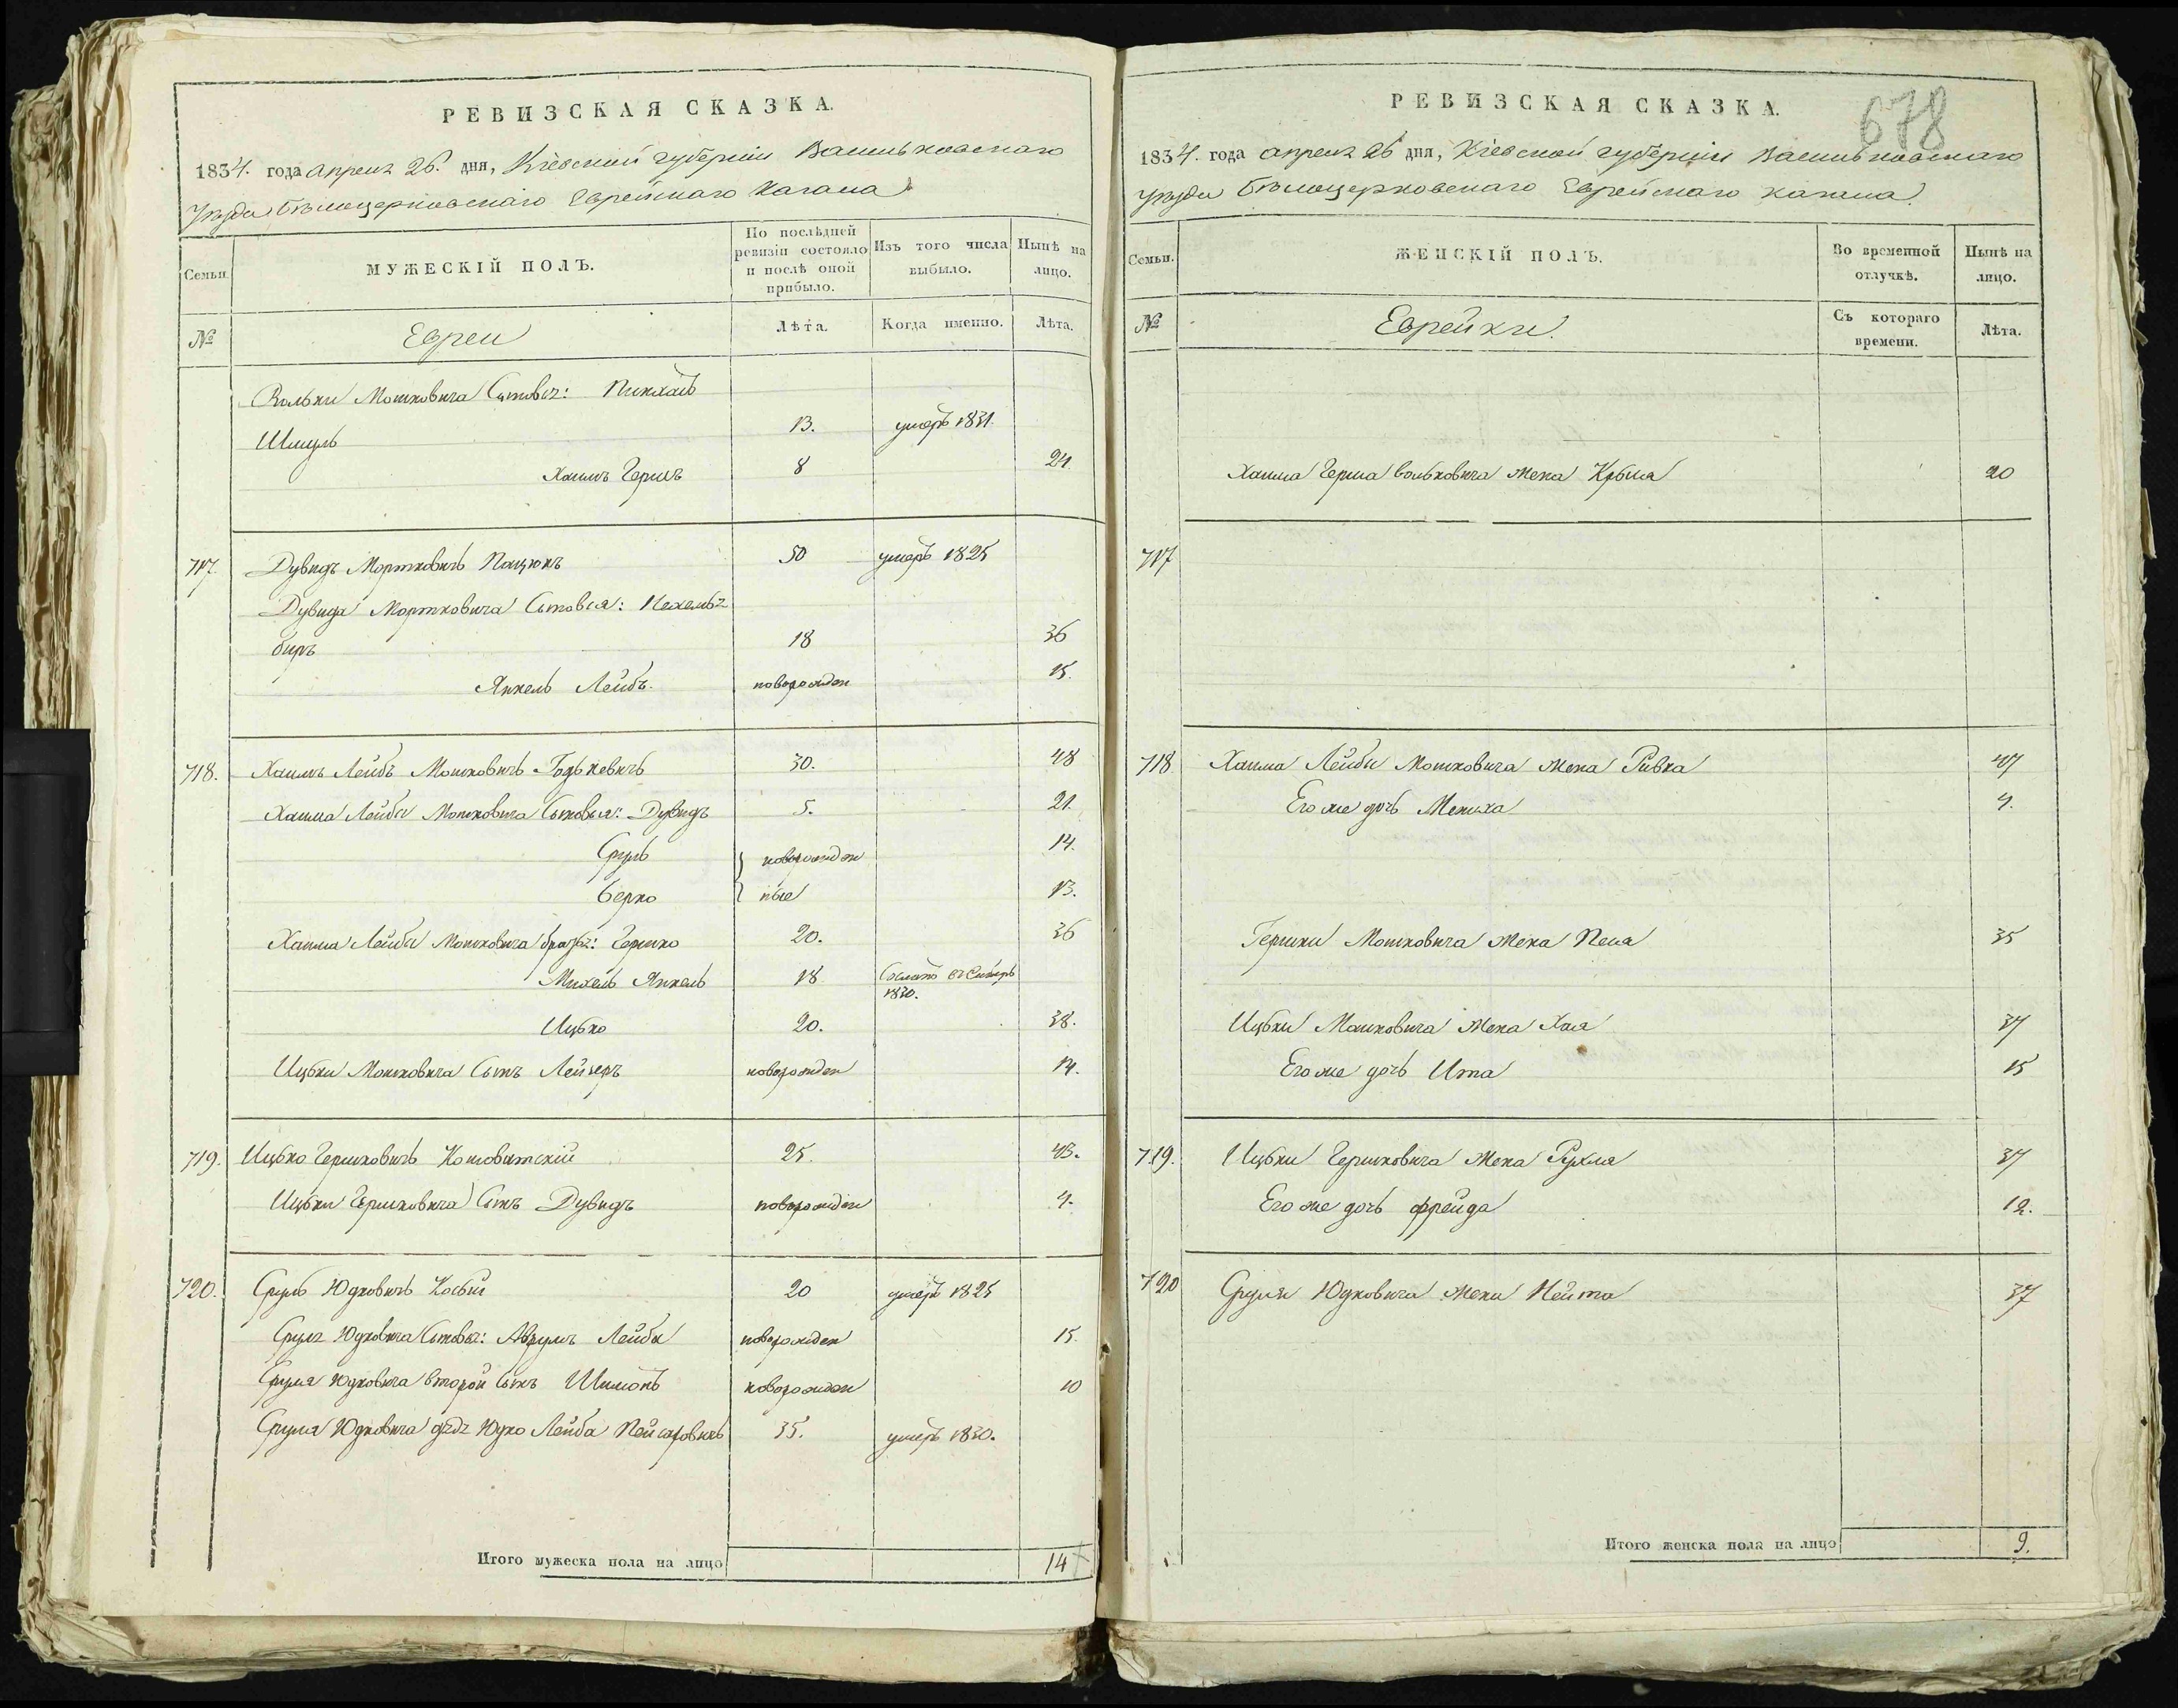 РЕВИЗСКАЯ СКАЗКА.
1834. года апреля 26. дня, Кіевской губерніи Васильковскаго
Уѣзда Бѣлоцерковскаго Еврейскаго Кагала
Семьи.
МУЖЕСКІЙ ПОЛЪ.
По послѣдней ревизіи состояло и послѣ оной прибыло.
Изъ того числа выбыло.
Нынѣ на лицо.
№
Евреи
Лѣта.
Когда именно.
Лѣта.
Вольки Мошковича Сыновья:
Шмуль 13. умеръ 1831.
Хаимъ Гершъ 8 24
717. Дувидъ Мортковичъ Пацюкъ 50 умеръ 1825
Дувида Мортковича Сыновья:
18 36
Янкель Лейбъ. новорожден 15.
718. Хаимъ Лейбъ Мошковичъ 30. 48
Хаима Лейбы Мошковича Сыновья: Дувидъ 5. 21.
Сруль новорожден 14.
Берко ные 13.
Хаима Лейбы Мошковича братья: Гершко 20. 36
Михель Янкель 18 Сосланъ въ Сибирь
1830.
Ицько 20. 38.
Ицьки Мошковича Сынъ Лейзеръ новорожден 14.
719. Ицько Гершковичъ 25. 43.
Ицьки Гершковича Сынъ Дувидъ новорожден 4.
720. Сруль Юдковичъ Косый 20 умеръ 1825
Сруля Юдковича Сыновья: Аврумъ Лейба новорожден 15.
Сруля Юдковича второй сынъ Шимонъ новорожден 10
Сруля Юдковича дядя Юдко Лейба Пейсаховичъ 35. умеръ 1830.
Итого мужеска пола на лицо 14
РЕВИЗСКАЯ СКАЗКА.
678
1834. года апреля 26 дня, Кіевской губерніи Васильковскаго
уѣзда Бѣлоцерковскаго Еврейскаго кагала.
Семьи.
ЖЕНСКІЙ ПОЛЪ.
Во временной отлучкѣ.
Нынѣ на лицо.
№
Еврейки.
Съ котораго времени.
Лѣта.
Хаима Герша Вольковича жена 20
717
718 Хаима Лейбы Мошковича жена Ривка 47
Его же дочь Мениха 4.
Гершки Мошковича жена Песя 35
Ицьки Мошковича жена Хая 37
Его же дочь Ита 15
719. Ицьки Гершковича жена Рухля 37
Его же дочь Фрейда 12.
720 Сруля Юдковича жена Нейта 37
Итого женска пола на лицо 9.